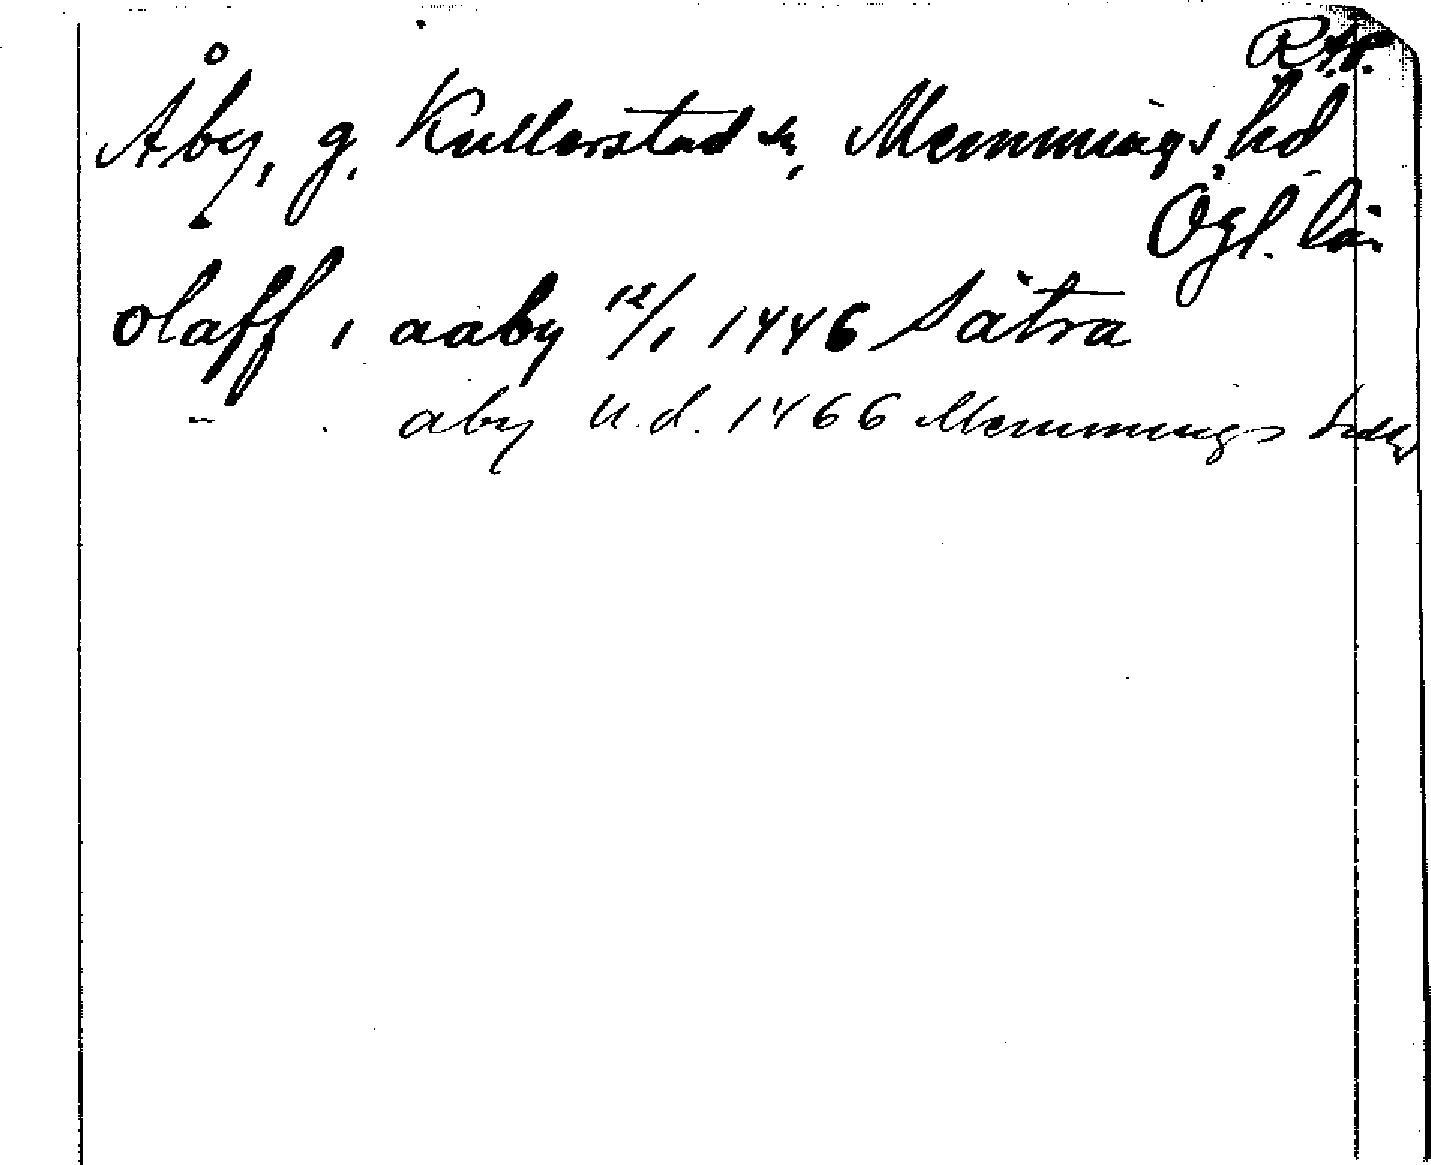 RAP.
Åby, g. Kullerstad sn, Memmings hd
Ögl. län
olaff i aaby 12/1 1446 Sätra
– aby u.d. 1466 Memmings hdh